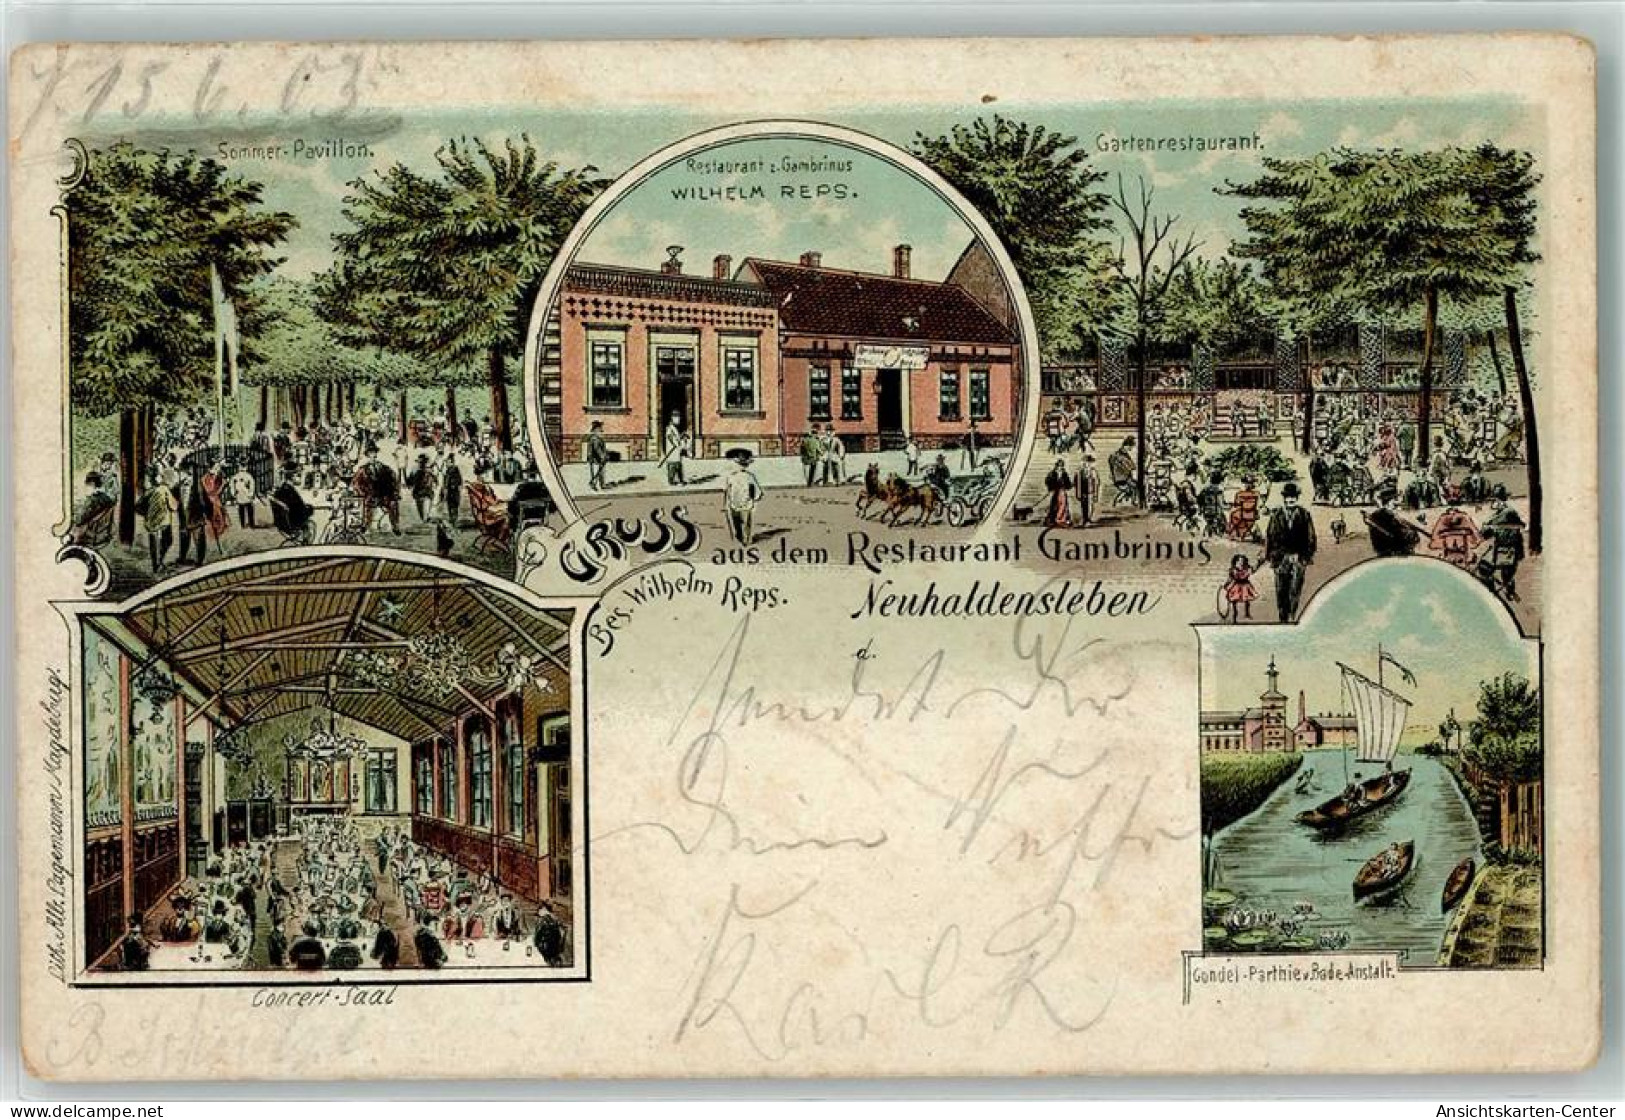 15.6.03
Sommer-Pavillon.
Restaurant z. Gambrinus
WILHELM REPS.
Gartenrestaurant.
GRUSS aus dem Restaurant Gambrinus
Bes. Wilhelm Reps.
Neuhaldensleben
d.
sendet Dir
Dein Neffe
Karl R
Lith. Alb. Dagemann Magdeburg.
Concert-Saal
Gondel-Parthie v. Bade-Anstalt.
delcampe.net
Ansichtskarten-Center